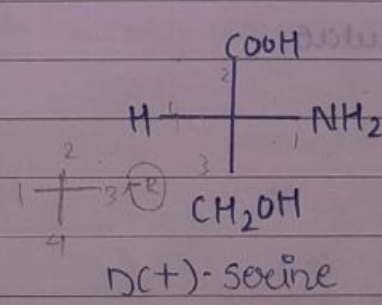 COOH
2
H 1 NH2
1
3
CH2OH
2
1 3 R
4
D(+)-Serine